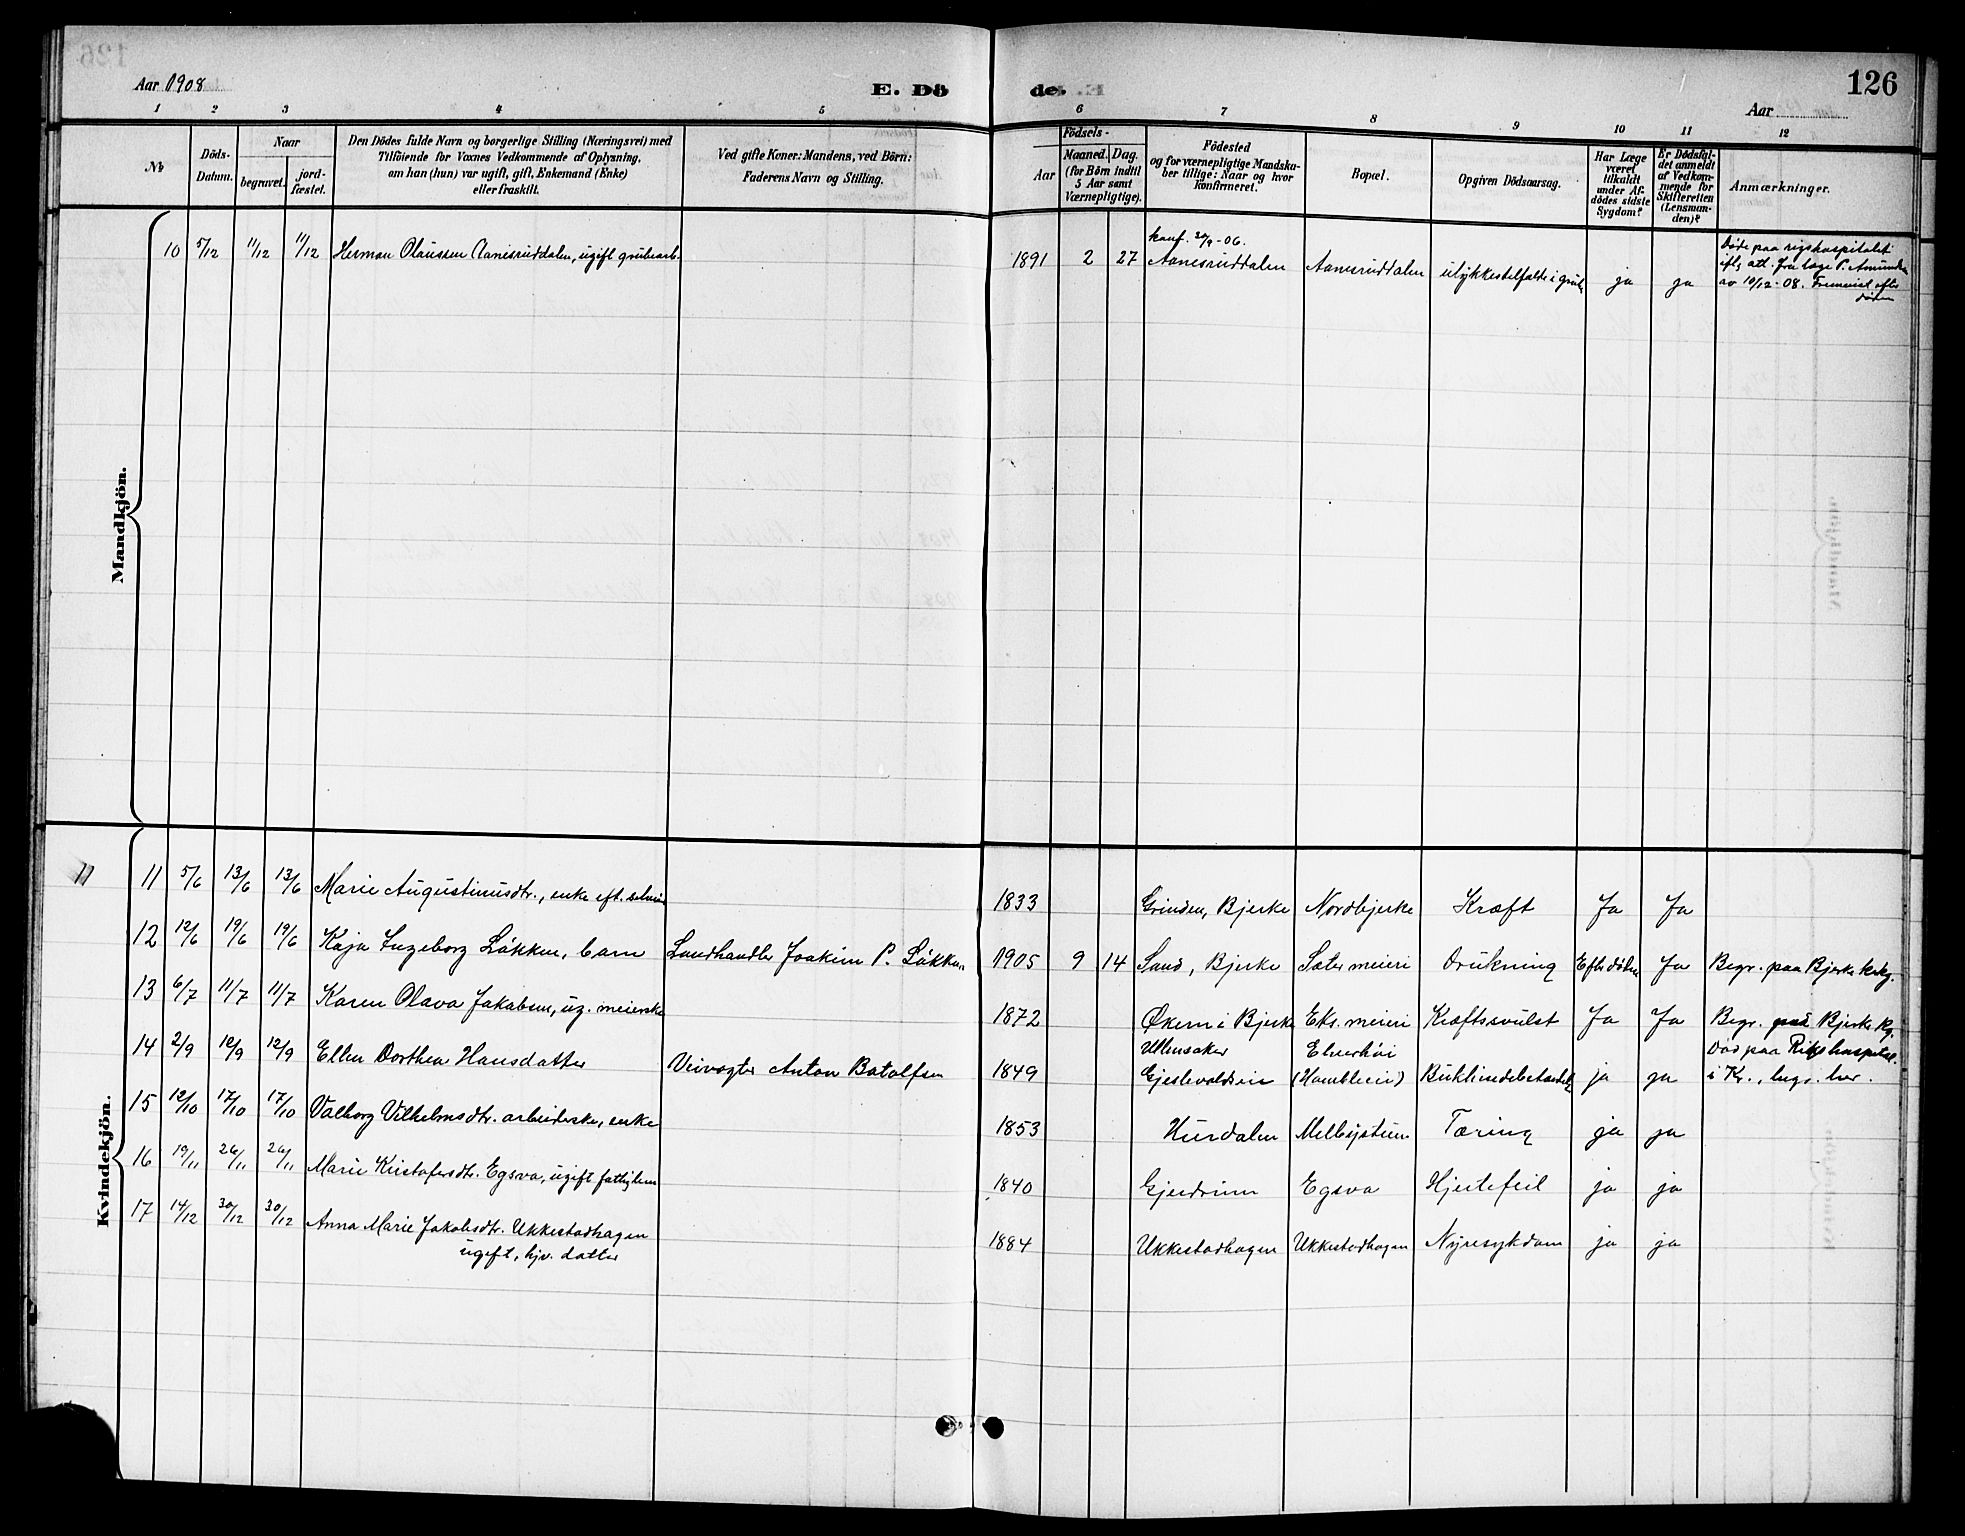 126
Aar 1908
E. Dö
de.
Aar
1 2 3 4 5 6 7 8 9 10 11 12
No
Döds-
Datum.
Naar
begravet.
jord-
fæstet.
Den Dödes fulde Navn og borgerlige Stilling (Næringsvei) med
Tilföiende for Voxnes Vedkommende af Oplysning,
om han (hun) var ugift, gift, Enkemand (Enke)
eller fraskilt.
Ved gifte Koner: Mandens, ved Börn:
Faderens Navn og Stilling.
Födsels-
Aar
Maaned. Dag.
(for Börn indtil
5 Aar samt
Værnepligtige).
Födested
og for værnepligtige Mandska-
ber tillige: Naar og hvor
konfirmeret.
Bopæl.
Opgiven Dödsaarsag.
Har Læge
været
tilkaldt
under Af-
dödes sidste
Sygdom?
Er Dödsfal-
det anmeldt
af Vedkom-
mende for
Skifteretten
(Lensman-
den)?
Anmærkninger.
Mandkjön.
10 5/12 11/12 11/12 Herman Olaussen Aanesruddalen, ugift grubearb.
1891 2 27 konf. 30/9-06.
Aanesruddalen Aanesruddalen ulykkestilfælde i grube ja ja
Døde paa rigshospitalet
iflg att. fra læge P.
av 10/12-08.
døden
Kvindekjön.
11 11 5/6 13/6 13/6 Marie Augustinusdtr., enke eft.
1833 Grinden, Bjerke Nordbjerke Kræft Ja Ja
12 12/6 19/6 19/6 Kaja Ingeborg Løkken, barn Landhandler Joakim P. Løkken
1905 9 14 Sand, Bjerke Sæter meieri Drukning Efter døden Ja Begr. paa Bjerke kirkeg.
13 6/7 11/7 11/7 Karen Olava Jakobsen, ug. meierske
1872 Økern i Bjerke Eks. meieri Kræftsvulst Ja Ja Begr. paa Bjerke kg.
14 2/9 12/9 12/9 Ellen Dorthea Hansdatter Veivogter Anton Botolfsen
Ullensaker Elverhøi Død paa Rikshospital.
1849 Gjestevoldseie ja ja i Kr., begr. her.
15 12/10 17/10 17/10 Valborg Vilhelmsdtr. arbeiderske, enke
1853 Hurdalen Melbystuen Tæring ja ja
16 19/11 26/11 26/11 Marie Kristofersdtr. Egsva, ugift fattiglem
1840 Gjerdrum Egsva Hjertefeil ja ja
17 14/12 30/12 30/12 Anna Marie Jakobsdtr. Ukkestadhagen
ugift, hjv. datter
1884 Ukkestadhagen Ukkestadhagen Nyresykdom ja ja